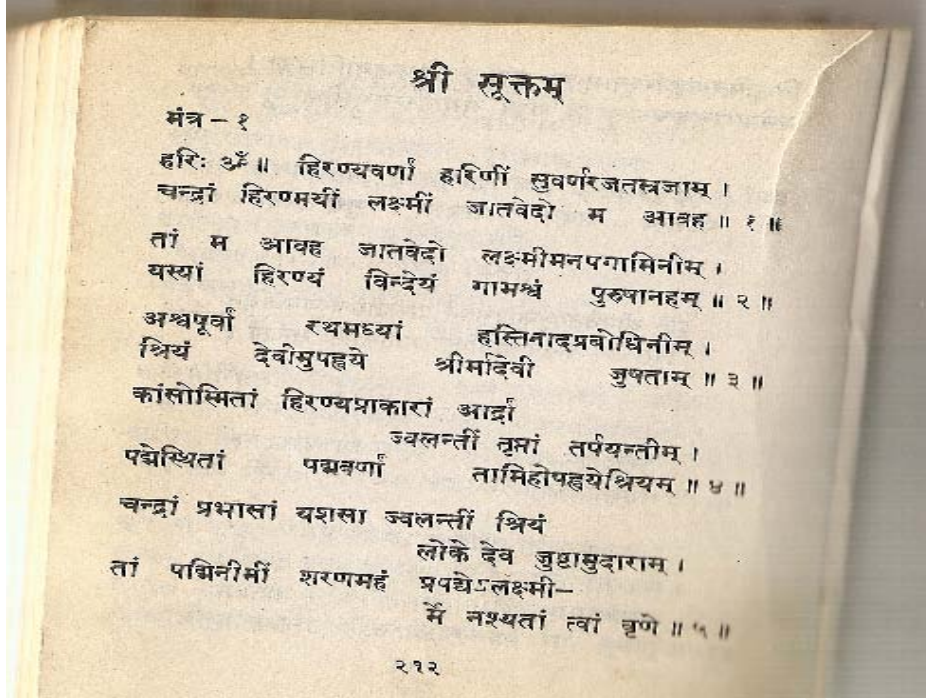 श्री सूक्तम्
मंत्र - १
हरिः ॐ ॥ हिरण्यवर्णां हरिणीं सुवर्णरजतस्रजाम् ।
चन्द्रां हिरण्मयीं लक्ष्मीं जातवेदो म आवह ॥ १ ॥
तां म आवह जातवेदो लक्ष्मीमनपगामिनीम् ।
यस्यां हिरण्यं विन्देयं गामश्वं पुरुषानहम् ॥ २ ॥
अश्वपूर्वां रथमध्यां हस्तिनादप्रबोधिनीम् ।
श्रियं देवीमुपह्वये श्रीर्मादेवी जुषताम् ॥ ३ ॥
कांसोस्मितां हिरण्यप्राकारां आर्द्रां
ज्वलन्तीं तृप्तां तर्पयन्तीम् ।
पद्मेस्थितां पद्मवर्णां तामिहोपह्वयेश्रियम् ॥ ४ ॥
चन्द्रां प्रभासां यशसा ज्वलन्तीं श्रियं
लोके देव जुष्टामुदाराम् ।
तां पद्मिनीमीं शरणमहं प्रपद्येऽलक्ष्मी-
र्मे नश्यतां त्वां वृणे ॥ ५ ॥
२१२